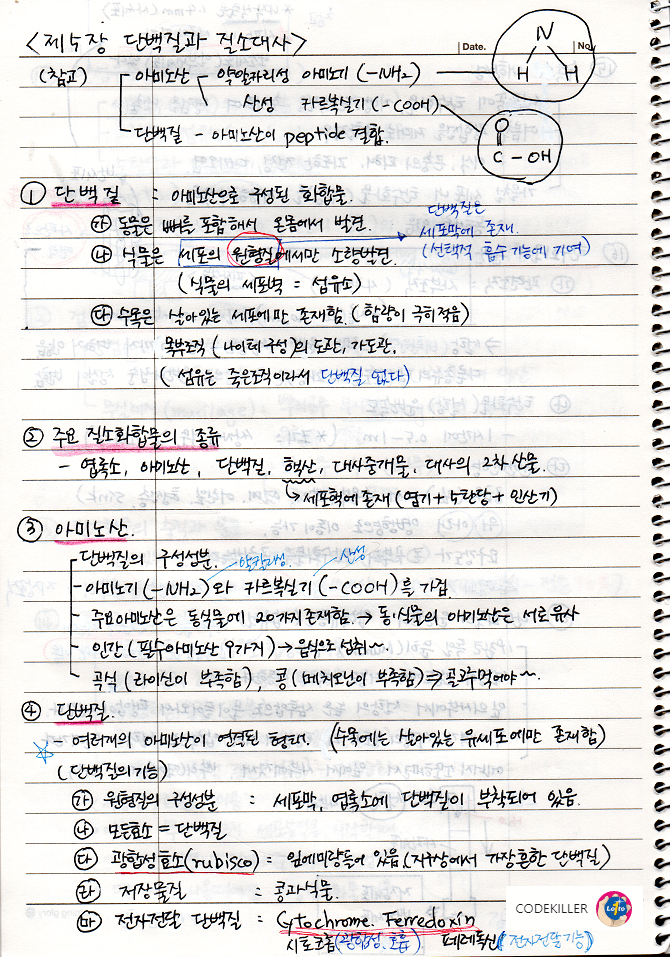 <제5장 단백질과 질소대사>
Date. No.
(참고) 아미노산 - 약알카리성 아미노기 (-NH2)
N
H H
산성 카르복실기 (-COOH)
단백질 - 아미노산이 peptide 결합.
O
C - OH
① 단백질 = 아미노산으로 구성된 화합물.
㉮ 동물은 뼈를 포함해서 온몸에서 발견.
단백질은
세포막에 존재.
(선택적 흡수기능에 기여)
㉯ 식물은 세포의 원형질에서만 소량발견.
(식물의 세포벽 = 섬유소)
㉰ 수목은 살아있는 세포에만 존재함. (함량이 극히 적음)
목부조직 (나이테 구성)의 도관, 가도관,
(섬유는 죽은조직이라서 단백질 없다)
② 주요 질소화합물의 종류
- 엽록소, 아미노산, 단백질, 핵산, 대사중개물, 대사의 2차산물.
→ 세포핵에 존재 (염기 + 5탄당 + 인산기)
③ 아미노산.
단백질의 구성성분. 알칼리성. 산성
- 아미노기 (-NH2)와 카르복실기 (-COOH)를 가짐.
- 주요아미노산은 동식물에 20가지 존재함. → 동·식물의 아미노산은 서로 유사
- 인간 (필수아미노산 9가지) → 음식으로 섭취~.
곡식 (라이신이 부족함), 콩 (메치오닌이 부족함) ⇒ 골고루먹어야~.
④ 단백질.
☆ - 여러개의 아미노산이 연결된 형태. (수목에는 살아있는 유세포에만 존재함)
(단백질의 기능)
㉮ 원형질의 구성성분 = 세포막, 엽록소에 단백질이 부착되어 있음.
㉯ 모든효소 = 단백질
㉰ 광합성효소(rubisco) = 잎에 미량들어 있음 (지구상에서 가장흔한 단백질)
㉱ 저장물질 = 콩과식물.
㉲ 전자전달 단백질 = Cytochrome. Ferredoxin
시토크롬 (광합성, 호흡) 페레독신 (전자전달기능)
CODEKILLER
Lotto